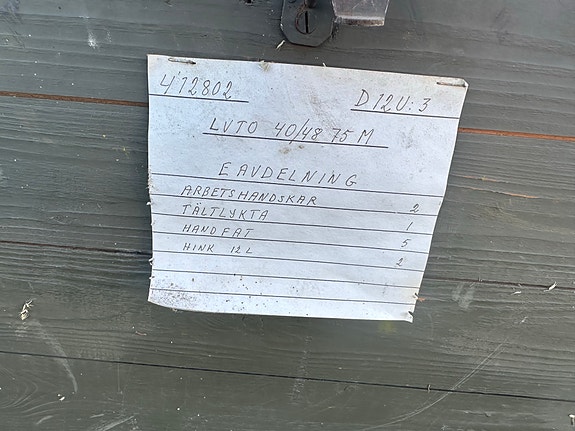 4'12802 D12U:3
LVTO 40/48 75 M
E AVDELNING
ARBETSHANDSKAR 2
TÄLTLYKTA 1
HANDFAT 5
HINK 12 L 2